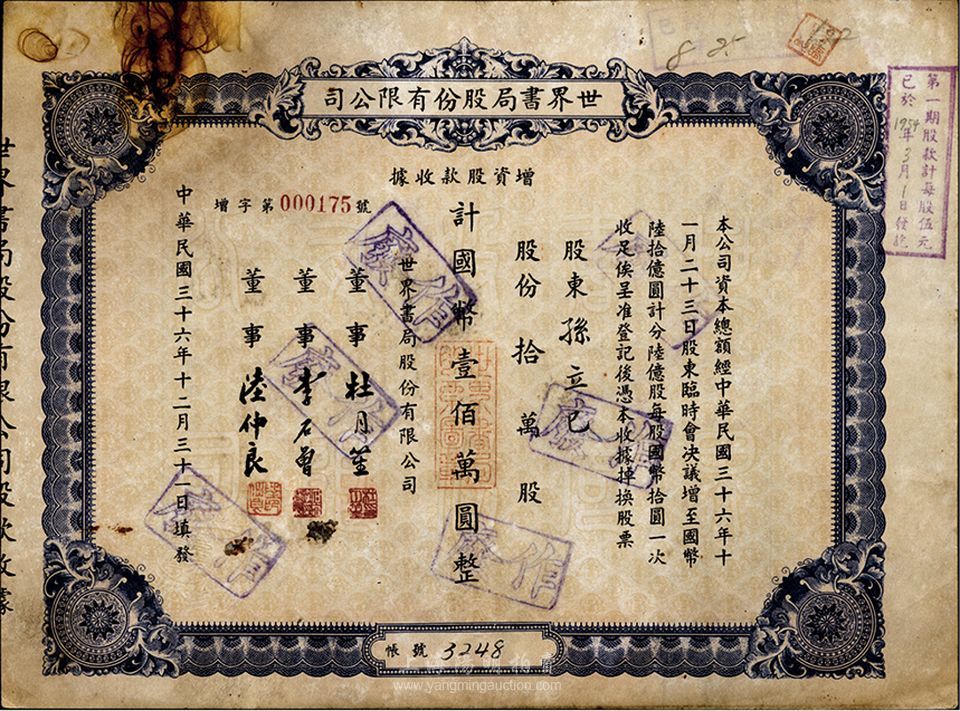 世界書局股份有限公司
增資股款收據
增字第000175號
本公司資本總額經中華民國三十六年十
一月二十三日股東臨時會決議增至國幣
陸拾億圓計分陸億股每股國幣拾圓一次
收足俟呈准登記後憑本收據掉換股票
股東孫立己
股份拾萬股
計國幣壹佰萬圓整
世界書局股份有限公司
董事杜月笙
董事李石曾
董事陸仲良
中華民國三十六年十二月三十一日填發
帳號 3248
第一期股款計每股伍元
已於1954年3月1日發訖
作廢
作廢
作廢
作廢
作廢
世界書局股份有限公司股款收據
8 25
www.yangmingauction.com